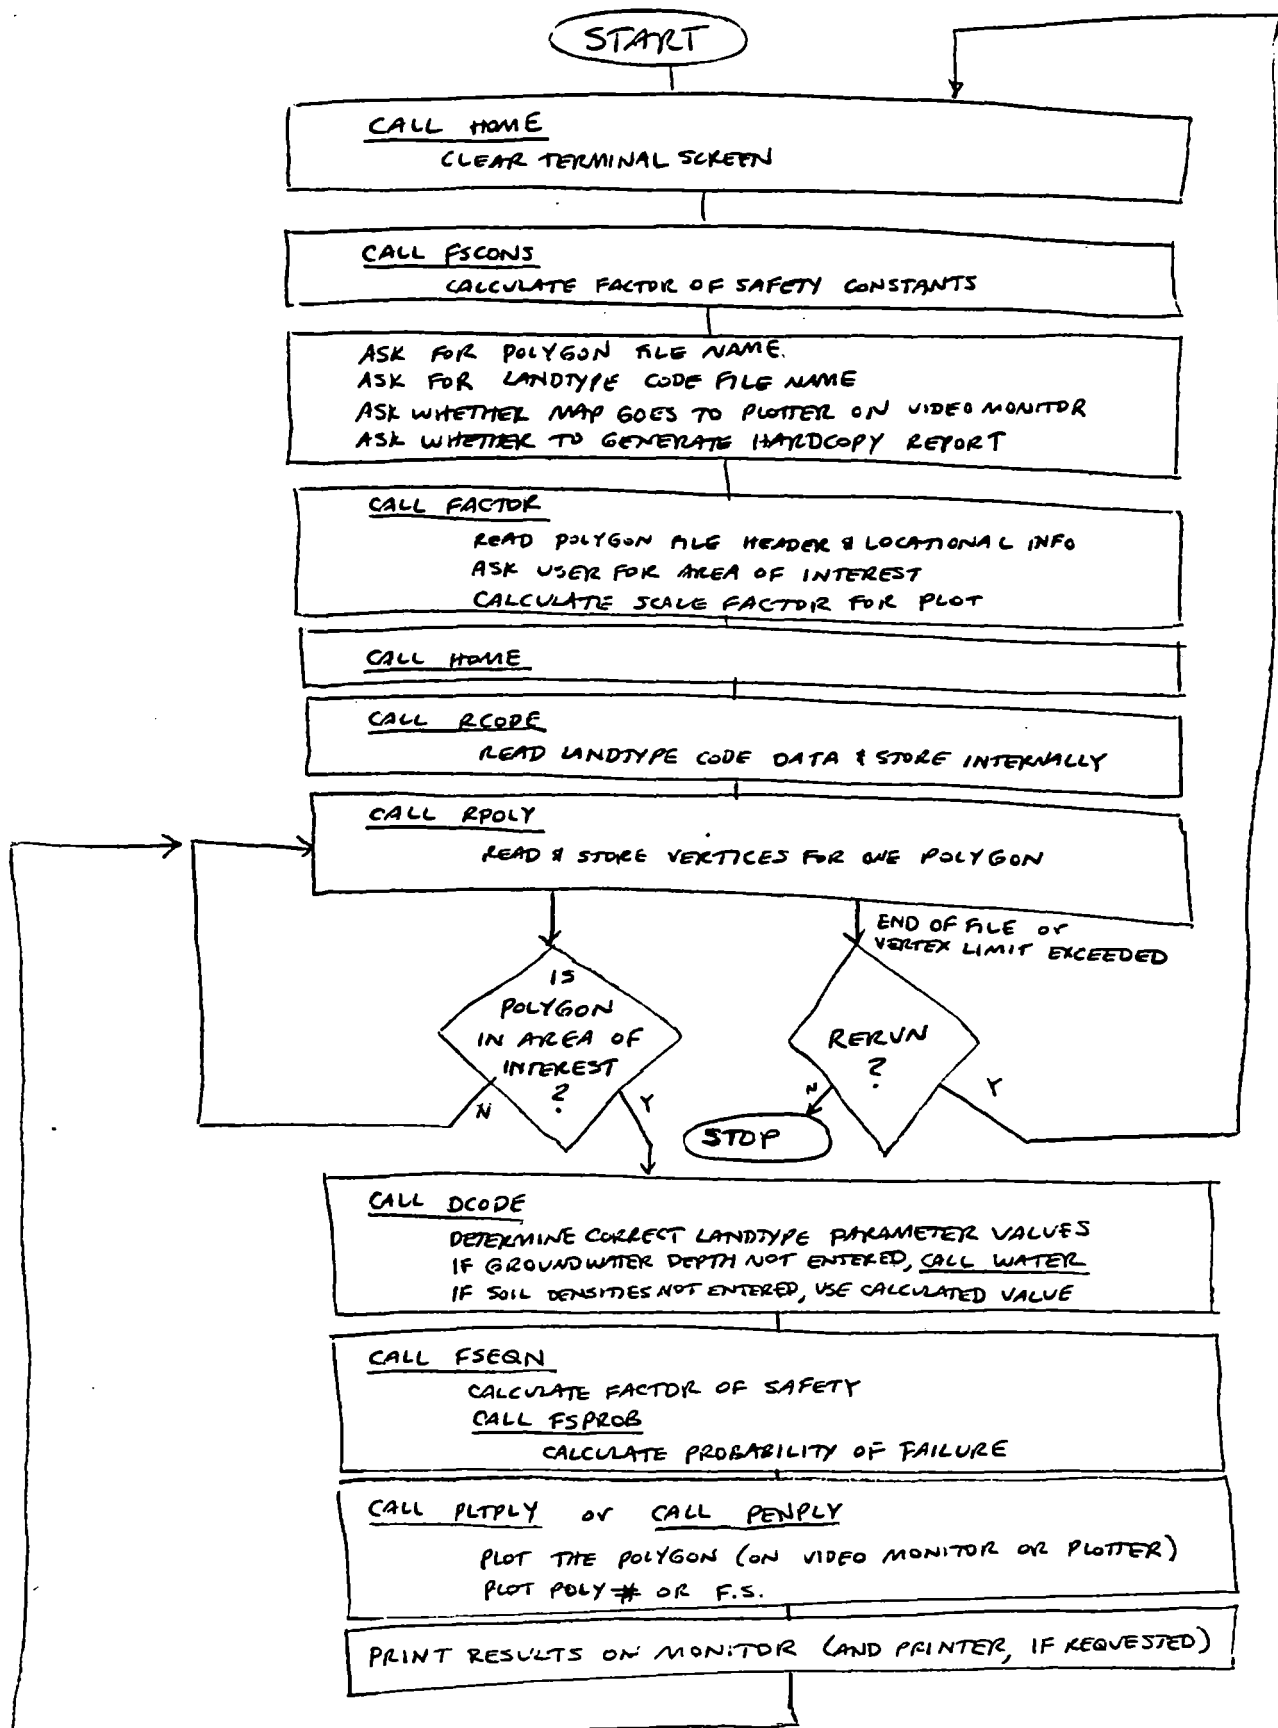 START
CALL HOME
CLEAR TERMINAL SCREEN
CALL FSCONS
CALCULATE FACTOR OF SAFETY CONSTANTS
ASK FOR POLYGON FILE NAME.
ASK FOR LANDTYPE CODE FILE NAME
ASK WHETHER MAP GOES TO PLOTTER OR VIDEO MONITOR
ASK WHETHER TO GENERATE HARDCOPY REPORT
CALL FACTOR
READ POLYGON FILE HEADER & LOCATIONAL INFO
ASK USER FOR AREA OF INTEREST
CALCULATE SCALE FACTOR FOR PLOT
CALL HOME
CALL RCODE
READ LANDTYPE CODE DATA & STORE INTERNALLY
CALL RPOLY
READ & STORE VERTICES FOR ONE POLYGON
END OF FILE or
VERTEX LIMIT EXCEEDED
IS
POLYGON
IN AREA OF
INTEREST
?
N
Y
RERUN
?
N
Y
STOP
CALL DCODE
DETERMINE CORRECT LANDTYPE PARAMETER VALUES
IF GROUNDWATER DEPTH NOT ENTERED, CALL WATER
IF SOIL DENSITIES NOT ENTERED, USE CALCULATED VALUE
CALL FSEQN
CALCULATE FACTOR OF SAFETY
CALL FSPROB
CALCULATE PROBABILITY OF FAILURE
CALL PLTPLY or CALL PENPLY
PLOT THE POLYGON (ON VIDEO MONITOR OR PLOTTER)
PLOT POLY # OR F.S.
PRINT RESULTS ON MONITOR (AND PRINTER, IF REQUESTED)